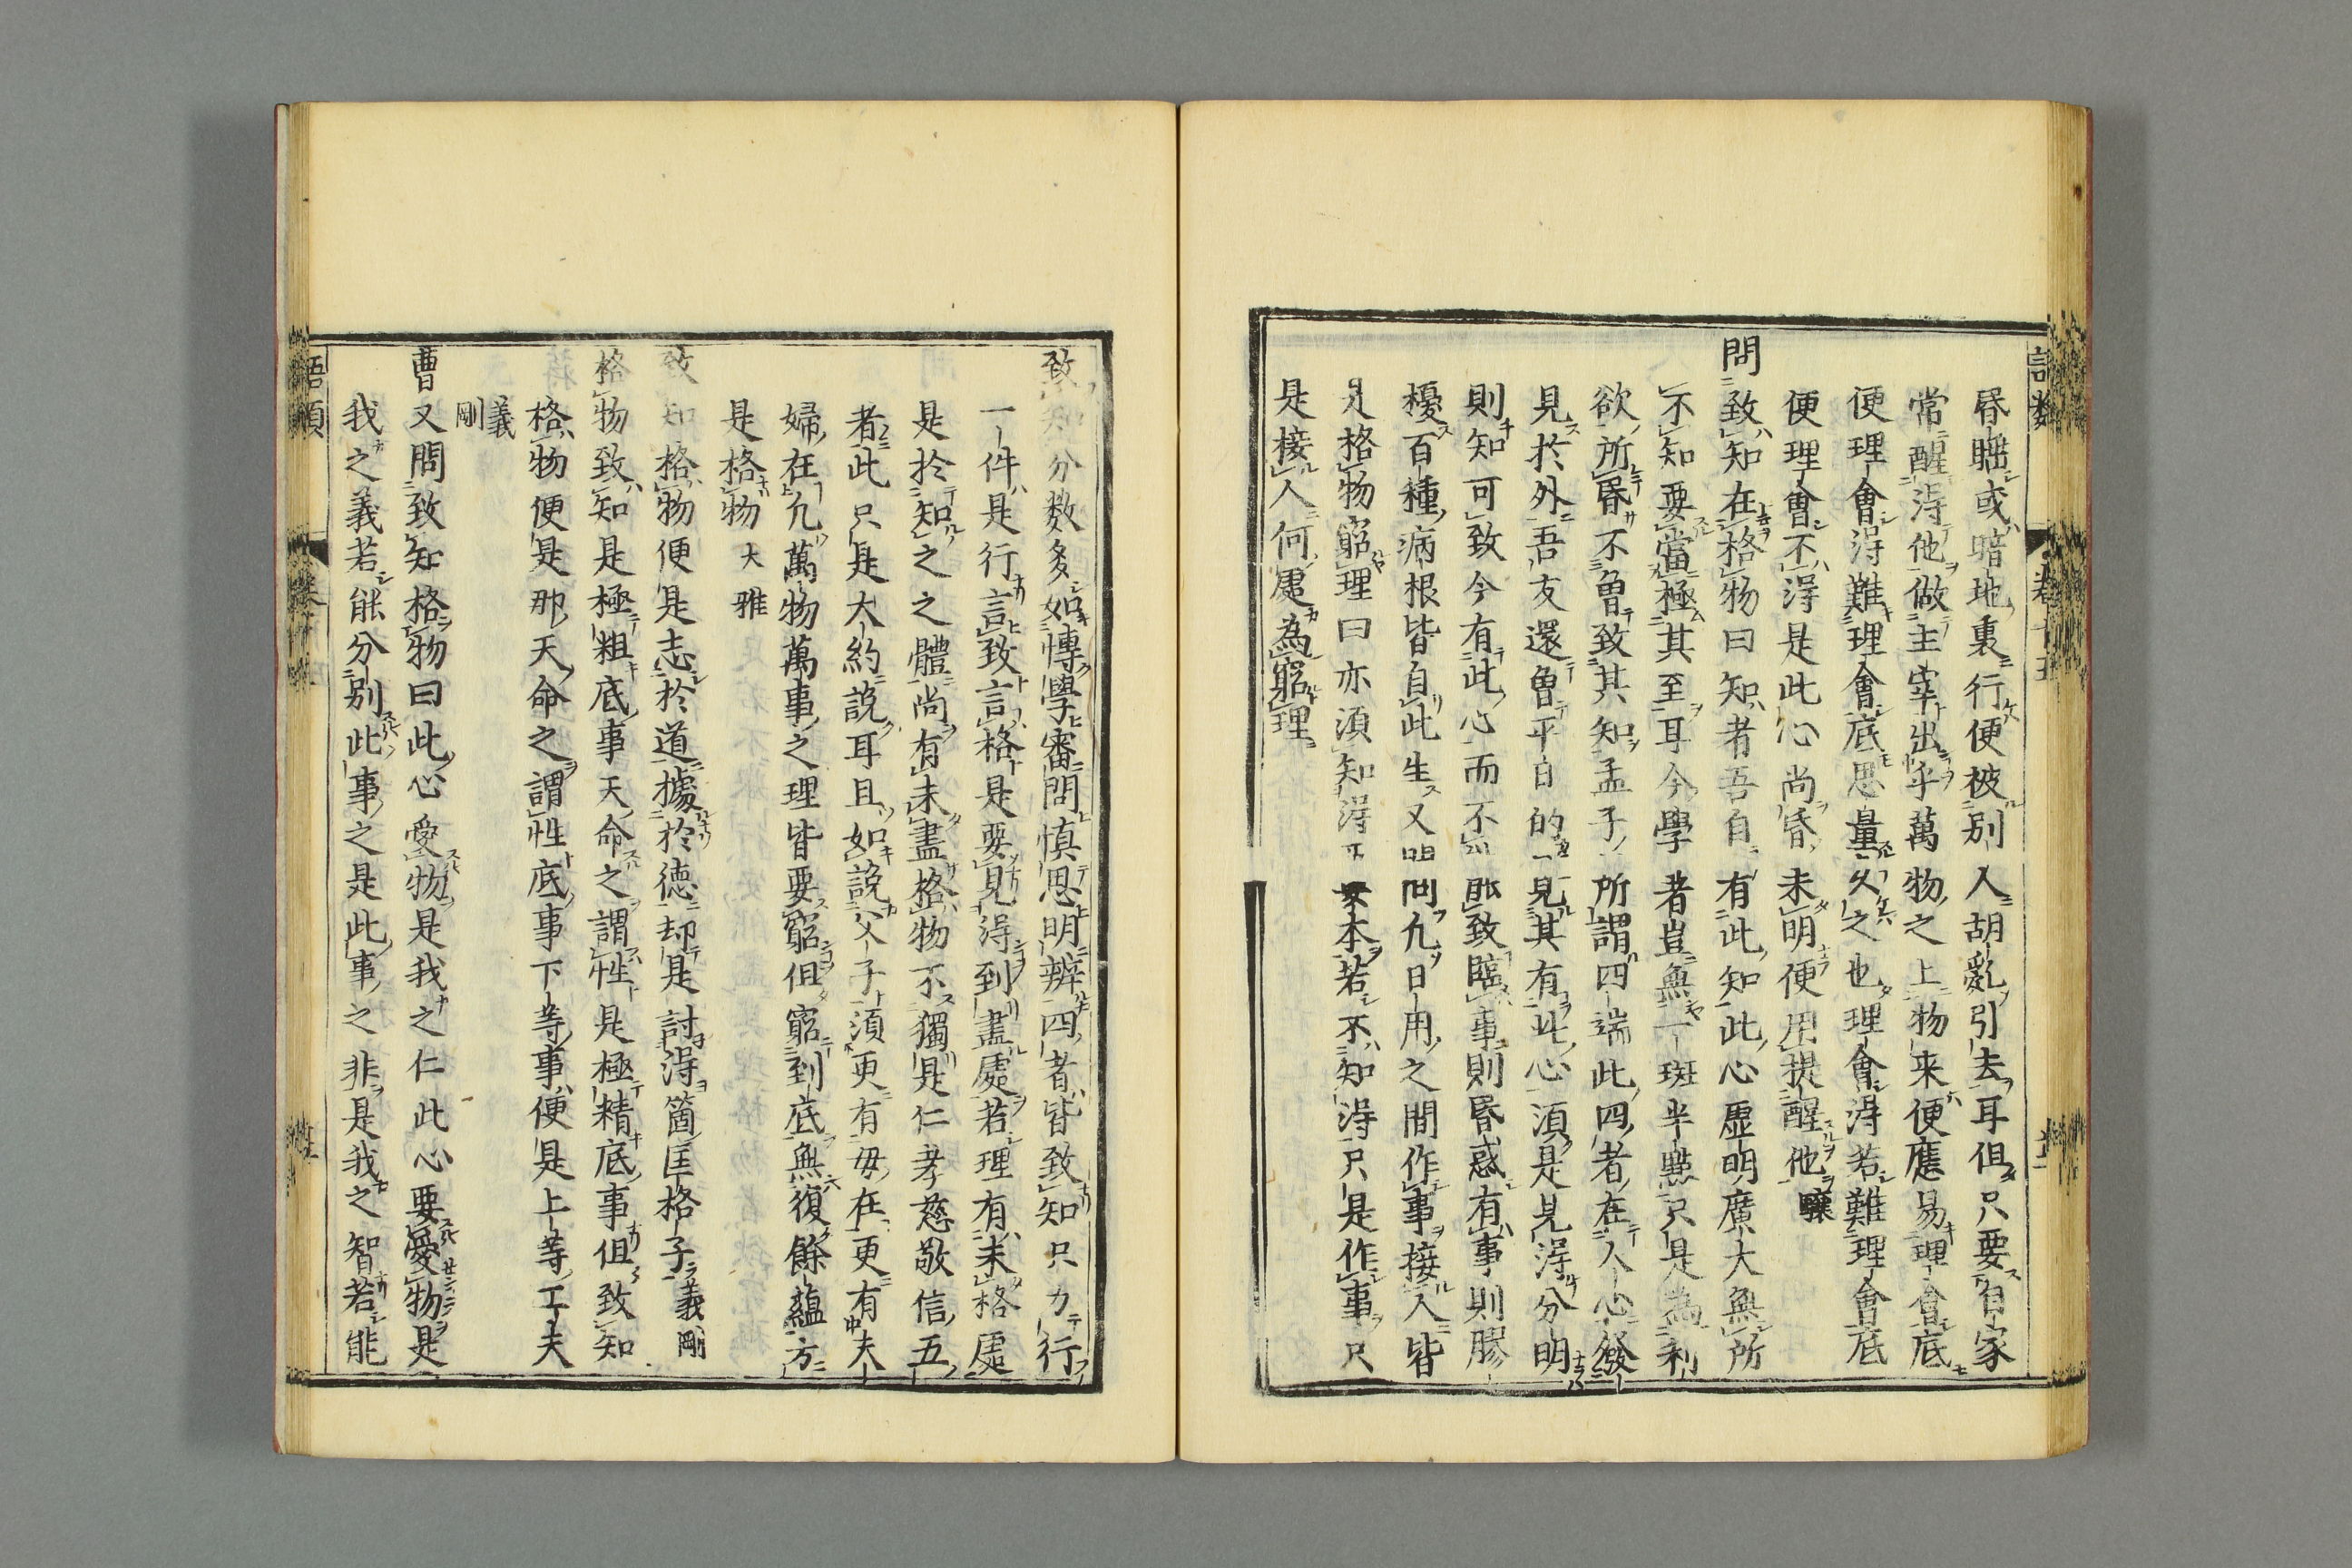 昬䵝或暗地裏行便被别人胡亂引去耳但只要自家
常醒得他做主宰出乎萬物之上物来便應易理會底
便理會得難理會底思量久之也理會得若難理會底
便理會不得是此心尚昏未明便用提醒他驤
問致知在格物曰知者吾自有此知此心虛明廣大無所
不知要當極其至耳今學者豈無一斑半點只是為利
欲所昬不曽致其知孟子所謂四端此四者在人心發
見於外吾友還曽平日的見其有此心須是見得分明
則知可致今有此心而不致臨事則昬惑有事則膠
擾百種病根皆自此生又問凢日用之間作事接人皆
是格物窮理曰亦須知得要本若不知得只是作事只
是接人何處為窮理
致知分数多如博學審問慎思明辨四者皆致知只力行
一件是行言致言格是要見得到盡處若理有未格處
是於知之之體尚有未盡格物不獨是仁孝慈敬信五
者此只是大約說耳且如說父子須更有母在更有夫
婦在凢萬物萬事之理皆要窮但窮到底無復餘蘊方
是格物 大雅
致知格物便是志於道據於德却是討得箇匡格子 義剛
格物致知是極粗底事天命之謂性是極精底事但致知
格物便是那天命之謂性底事下等事便是上等工夫
義剛
曹又問致知格物曰此心愛物是我之仁此心要愛物是
我之義若能分别此事之是此事之非是我之智若能